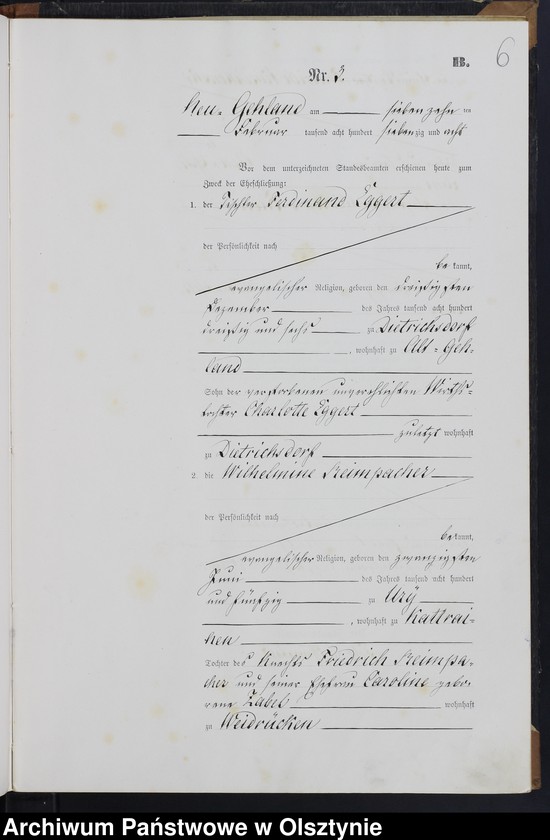 6
IIB.
Nr. 3.
Neu-Gehland am siebenzehn ten
Februar tausend acht hundert siebenzig und acht
Vor dem unterzeichneten Standesbeamten erschienen heute zum
Zweck der Eheschließung:
1. der Tischler Ferdinand Eggert
der Persönlichkeit nach
bekannt,
evangelischer Religion, geboren den dreißigsten
Dezember des Jahres tausend acht hundert
dreißig und sechs zu Dietrichsdorf
, wohnhaft zu Alt-Geh-
land
Sohn der verstorbenen unverehlichten Wirths-
tochter Charlotte Eggert
zuletzt wohnhaft
zu Dietrichsdorf
2. die Wilhelmine Reimpacher
der Persönlichkeit nach
bekannt,
evangelischer Religion, geboren den zwanzigsten
Juni des Jahres tausend acht hundert
und fünfzig zu
, wohnhaft zu Kattrai-
nen
Tochter des Knechts Friedrich Reimpa-
cher und seiner Ehefrau Caroline gebo-
rene Zabel wohnhaft
zu Weidrücken
Archiwum Państwowe w Olsztynie